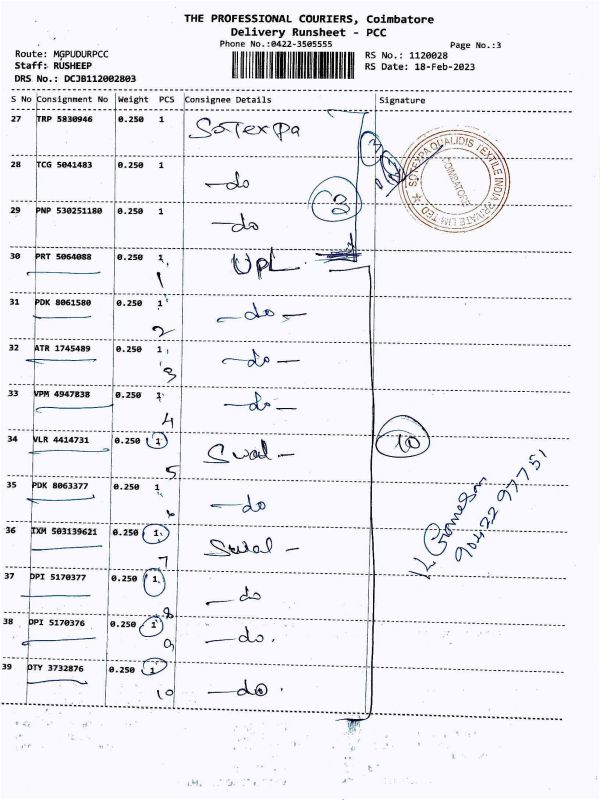 THE PROFESSIONAL COURIERS, Coimbatore
Delivery Runsheet - PCC
Phone No.:0422-3505555
Page No.:3
Route: MGPUDURPCC
RS No.: 1120028
Staff: RUSHEEP
RS Date: 18-Feb-2023
DRS No.: DCJB112002803
S No Consignment No Weight PCS Consignee Details Signature
27 TRP 5830946 0.250 1 SoTexpa
3
SOTEXPA QUALIDIS TEXTILE INDIA PRIVATE LIMITED
COIMBATORE
28 TCG 5041483 0.250 1 -do
3
29 PNP 530251180 0.250 1 -do
30 PRT 5064088 0.250 1 UPL
1
31 PDK 8061580 0.250 1 -do-
2
32 ATR 1745489 0.250 1 -do-
3
33 VPM 4947838 0.250 1 -do-
4
34 VLR 4414731 0.250 1 Swal-
10
5
35 PDK 8063377 0.250 1 -do
6
36 IXM 503139621 0.250 1 Swal-
7
90422 97751
37 DPI 5170377 0.250 1 -do
8
38 DPI 5170376 0.250 1 -do.
9
39 OTY 3732876 0.250 1 -do.
10